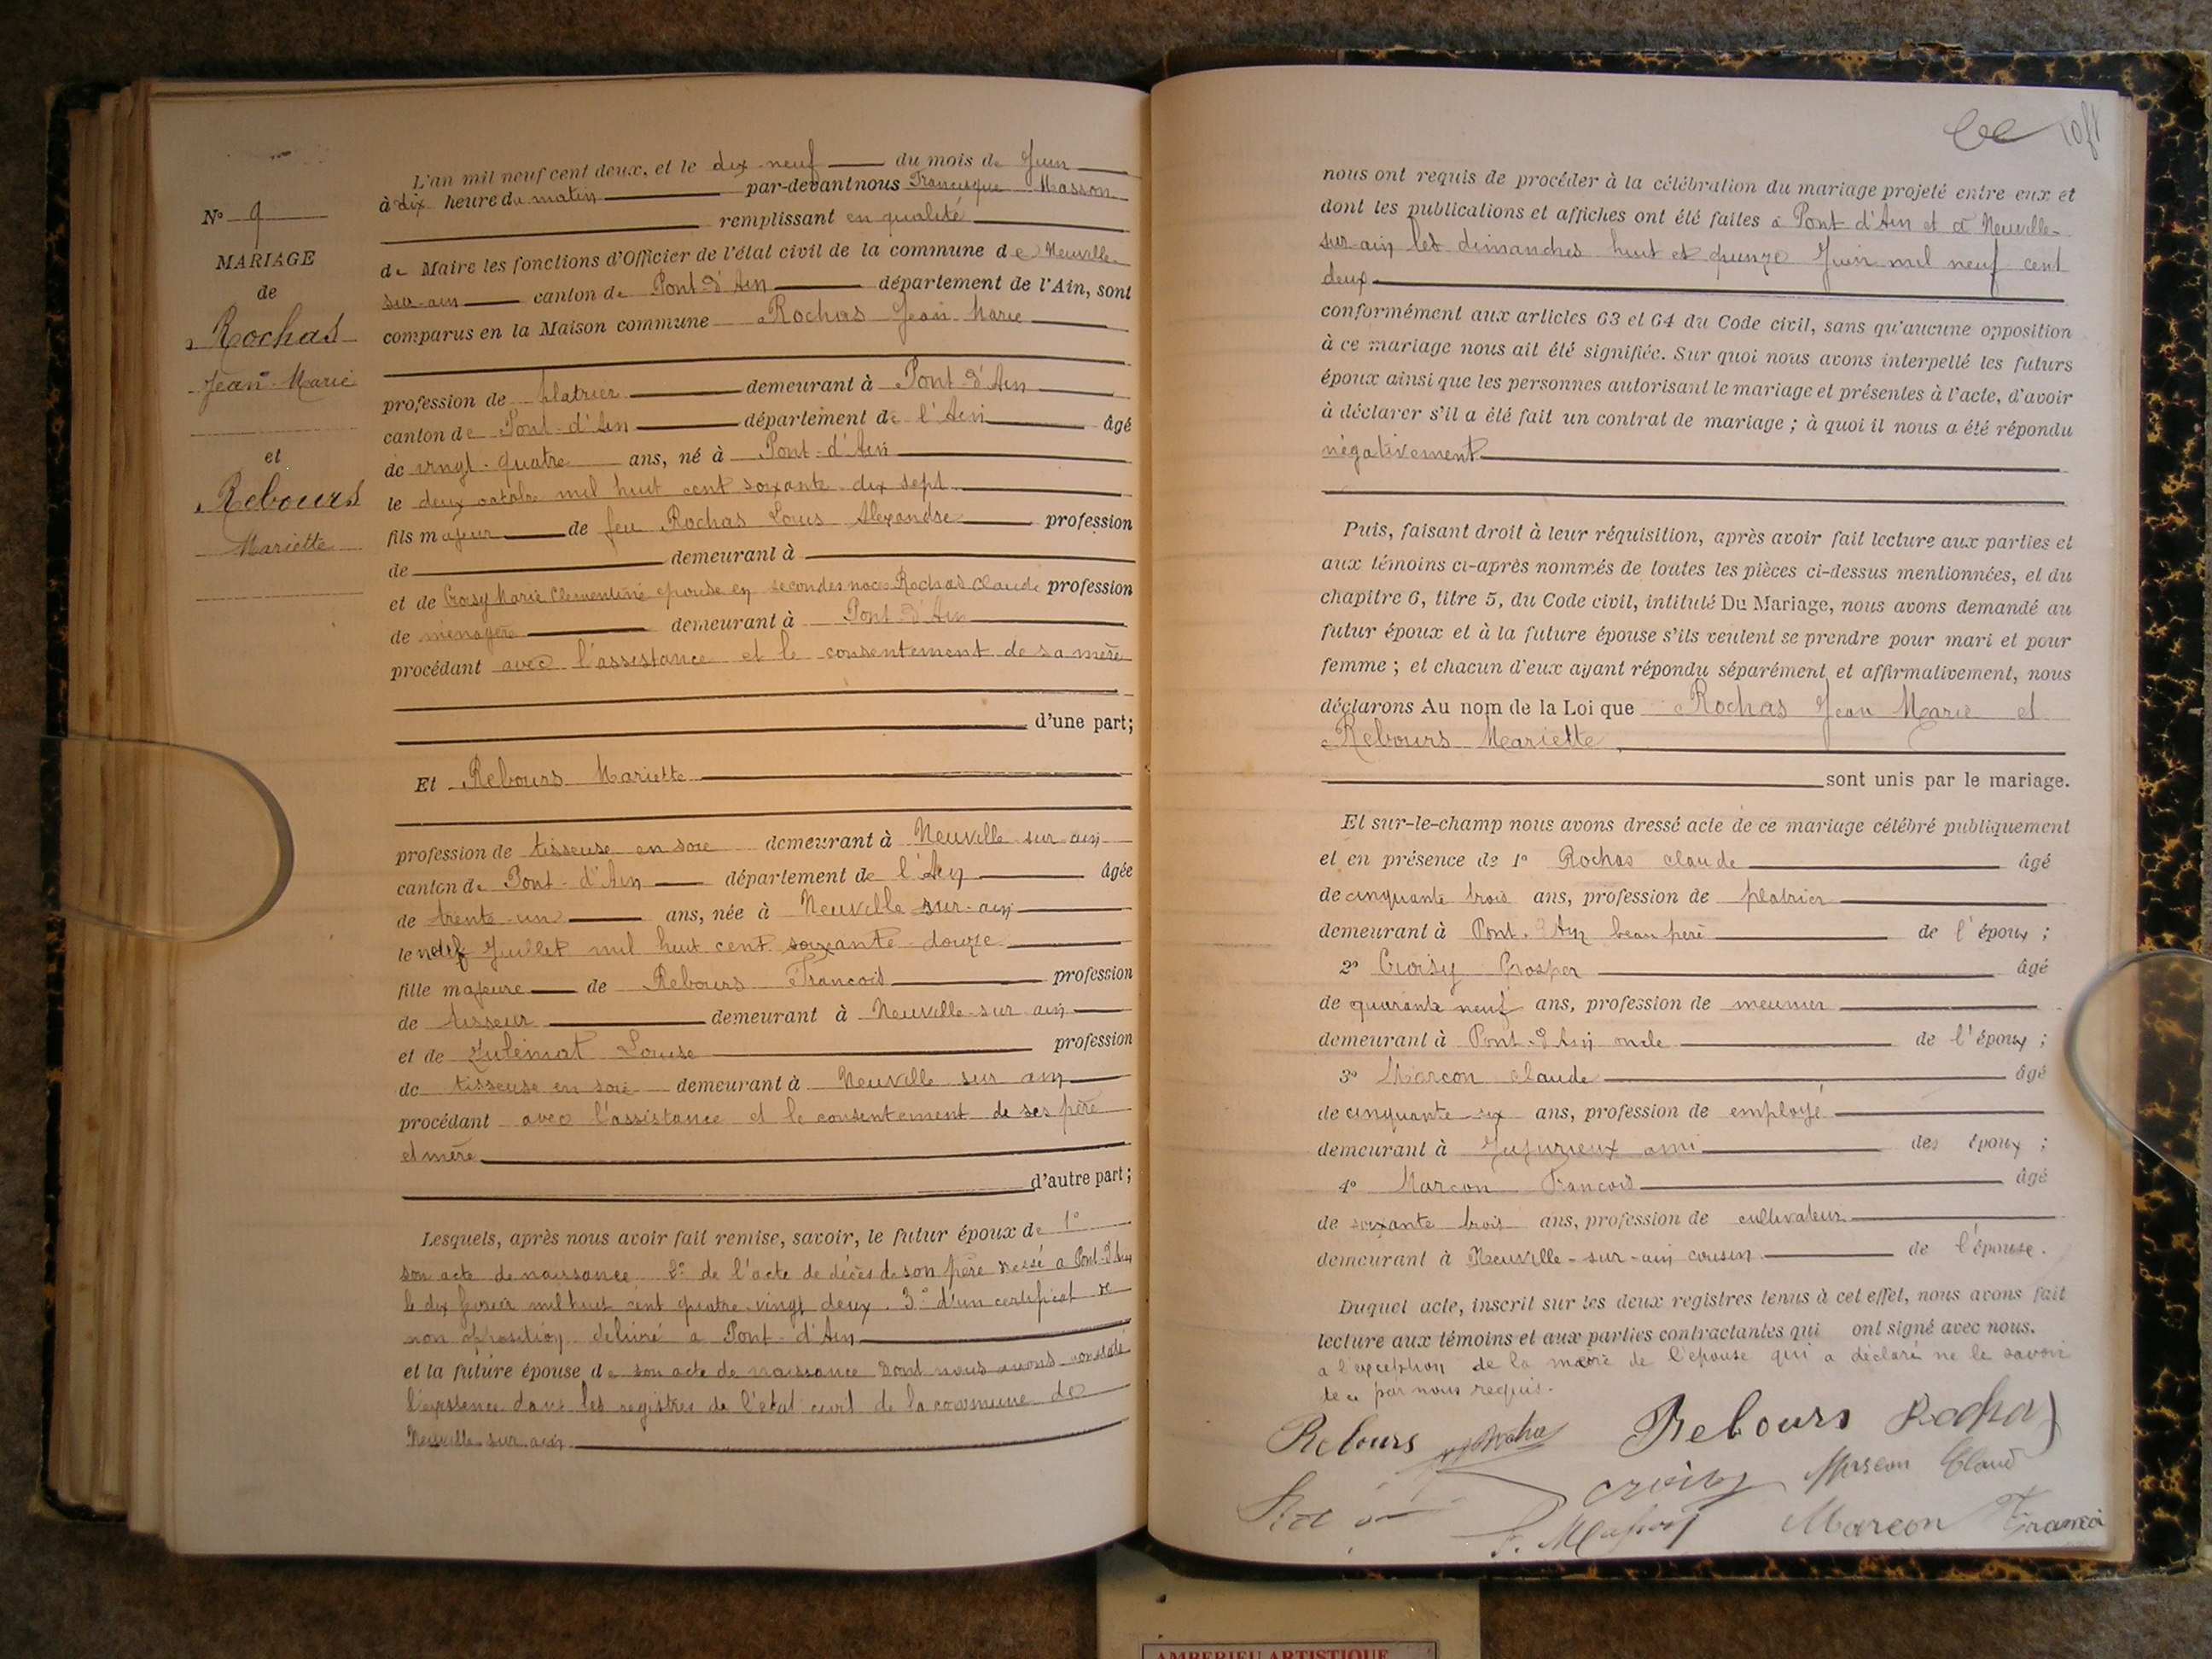 N° 9
MARIAGE
de
Rochas
Jean-Marie
et
Rebours
Mariette
L'an mil neuf cent deux, et le dix neuf du mois de Juin
à dix heure du matin par-devant nous Francisque Masson
remplissant en qualité
de Maire les fonctions d'Officier de l'état civil de la commune de Neuville-
sur-ain canton de Pont-d'Ain département de l'Ain, sont
comparus en la Maison commune Rochas Jean Marie
profession de platrier demeurant à Pont-d'Ain
canton de Pont-d'Ain département de l'Ain âgé
de vingt-quatre ans, né à Pont-d'Ain
le deux octobre mil huit cent soixante dix sept
fils majeur de feu Rochas Louis Alexandre profession
de demeurant à
et de Croisy Marie Clementine épouse en secondes noces Rochas Claude profession
de ménagère demeurant à Pont d'Ain
procédant avec l'assistance et le consentement de sa mère
d'une part;
Et Rebours Mariette
profession de tisseuse en soie demeurant à Neuville sur ain
canton de Pont-d'Ain département de l'Ain âgée
de trente-un ans, née à Neuville sur-ain
le Juillet mil huit cent soixante-douze
fille majeure de Rebours Francois profession
de tisseur demeurant à Neuville-sur ain
et de Zulémat Louise profession
de tisseuse en soie demeurant à Neuville sur ain
procédant avec l'assistance et le consentement de ses père
et mère
d'autre part;
Lesquels, après nous avoir fait remise, savoir, le futur époux de 1°
son acte de naissance 2° de l'acte de décès de son père à Pont-d'Ain
le dix février mil huit cent quatre vingt deux. 3° d'un certificat de
non opposition délivré a Pont-d'Ain
et la future épouse de son acte de naissance dont nous avons constaté
l'existence dans les registres de l'état civil de la commune de
Neuville sur ain
nous ont requis de procéder à la célébration du mariage projeté entre eux et
dont les publications et affiches ont été faites à Pont d'Ain et à Neuville-
sur-ain les dimanches huit et quinze Juin mil neuf cent
deux
conformément aux articles 63 et 64 du Code civil, sans qu'aucune opposition
à ce mariage nous ait été signifiée. Sur quoi nous avons interpellé les futurs
époux ainsi que les personnes autorisant le mariage et présentes à l'acte, d'avoir
à déclarer s'il a été fait un contrat de mariage ; à quoi il nous a été répondu
négativement
Puis, faisant droit à leur réquisition, après avoir fait lecture aux parties et
aux témoins ci-après nommés de toutes les pièces ci-dessus mentionnées, et du
chapitre 6, titre 5, du Code civil, intitulé Du Mariage, nous avons demandé au
futur époux et à la future épouse s'ils veulent se prendre pour mari et pour
femme ; et chacun d'eux ayant répondu séparément et affirmativement, nous
déclarons Au nom de la Loi que Rochas Jean Marie et
Rebours Mariette
sont unis par le mariage.
Et sur-le-champ nous avons dressé acte de ce mariage célébré publiquement
et en présence de 1° Rochas claude âgé
de cinquante trois ans, profession de platrier
demeurant à Pont-d'Ain beau père de l'époux ;
2° Croisy Prosper âgé
de quarante neuf ans, profession de meunier
demeurant à Pont-d'Ain oncle de l'époux ;
3° Marcon claude âgé
de cinquante-six ans, profession de employé
demeurant à Jujurieux ami des époux ;
4° Marcon Francois âgé
de soixante trois ans, profession de cultivateur
demeurant à Neuville-sur-ain cousin de l'épouse.
Duquel acte, inscrit sur les deux registres tenus à cet effet, nous avons fait
lecture aux témoins et aux parties contractantes qui ont signé avec nous.
a l'exception de la mère de l'épouse qui a déclaré ne le savoir
de ce par nous requis.
Rebours Rebours Rochas
croisy Marcon Claud
F. Masson Marcon Francoi
AMBERIEU ARTISTIQUE